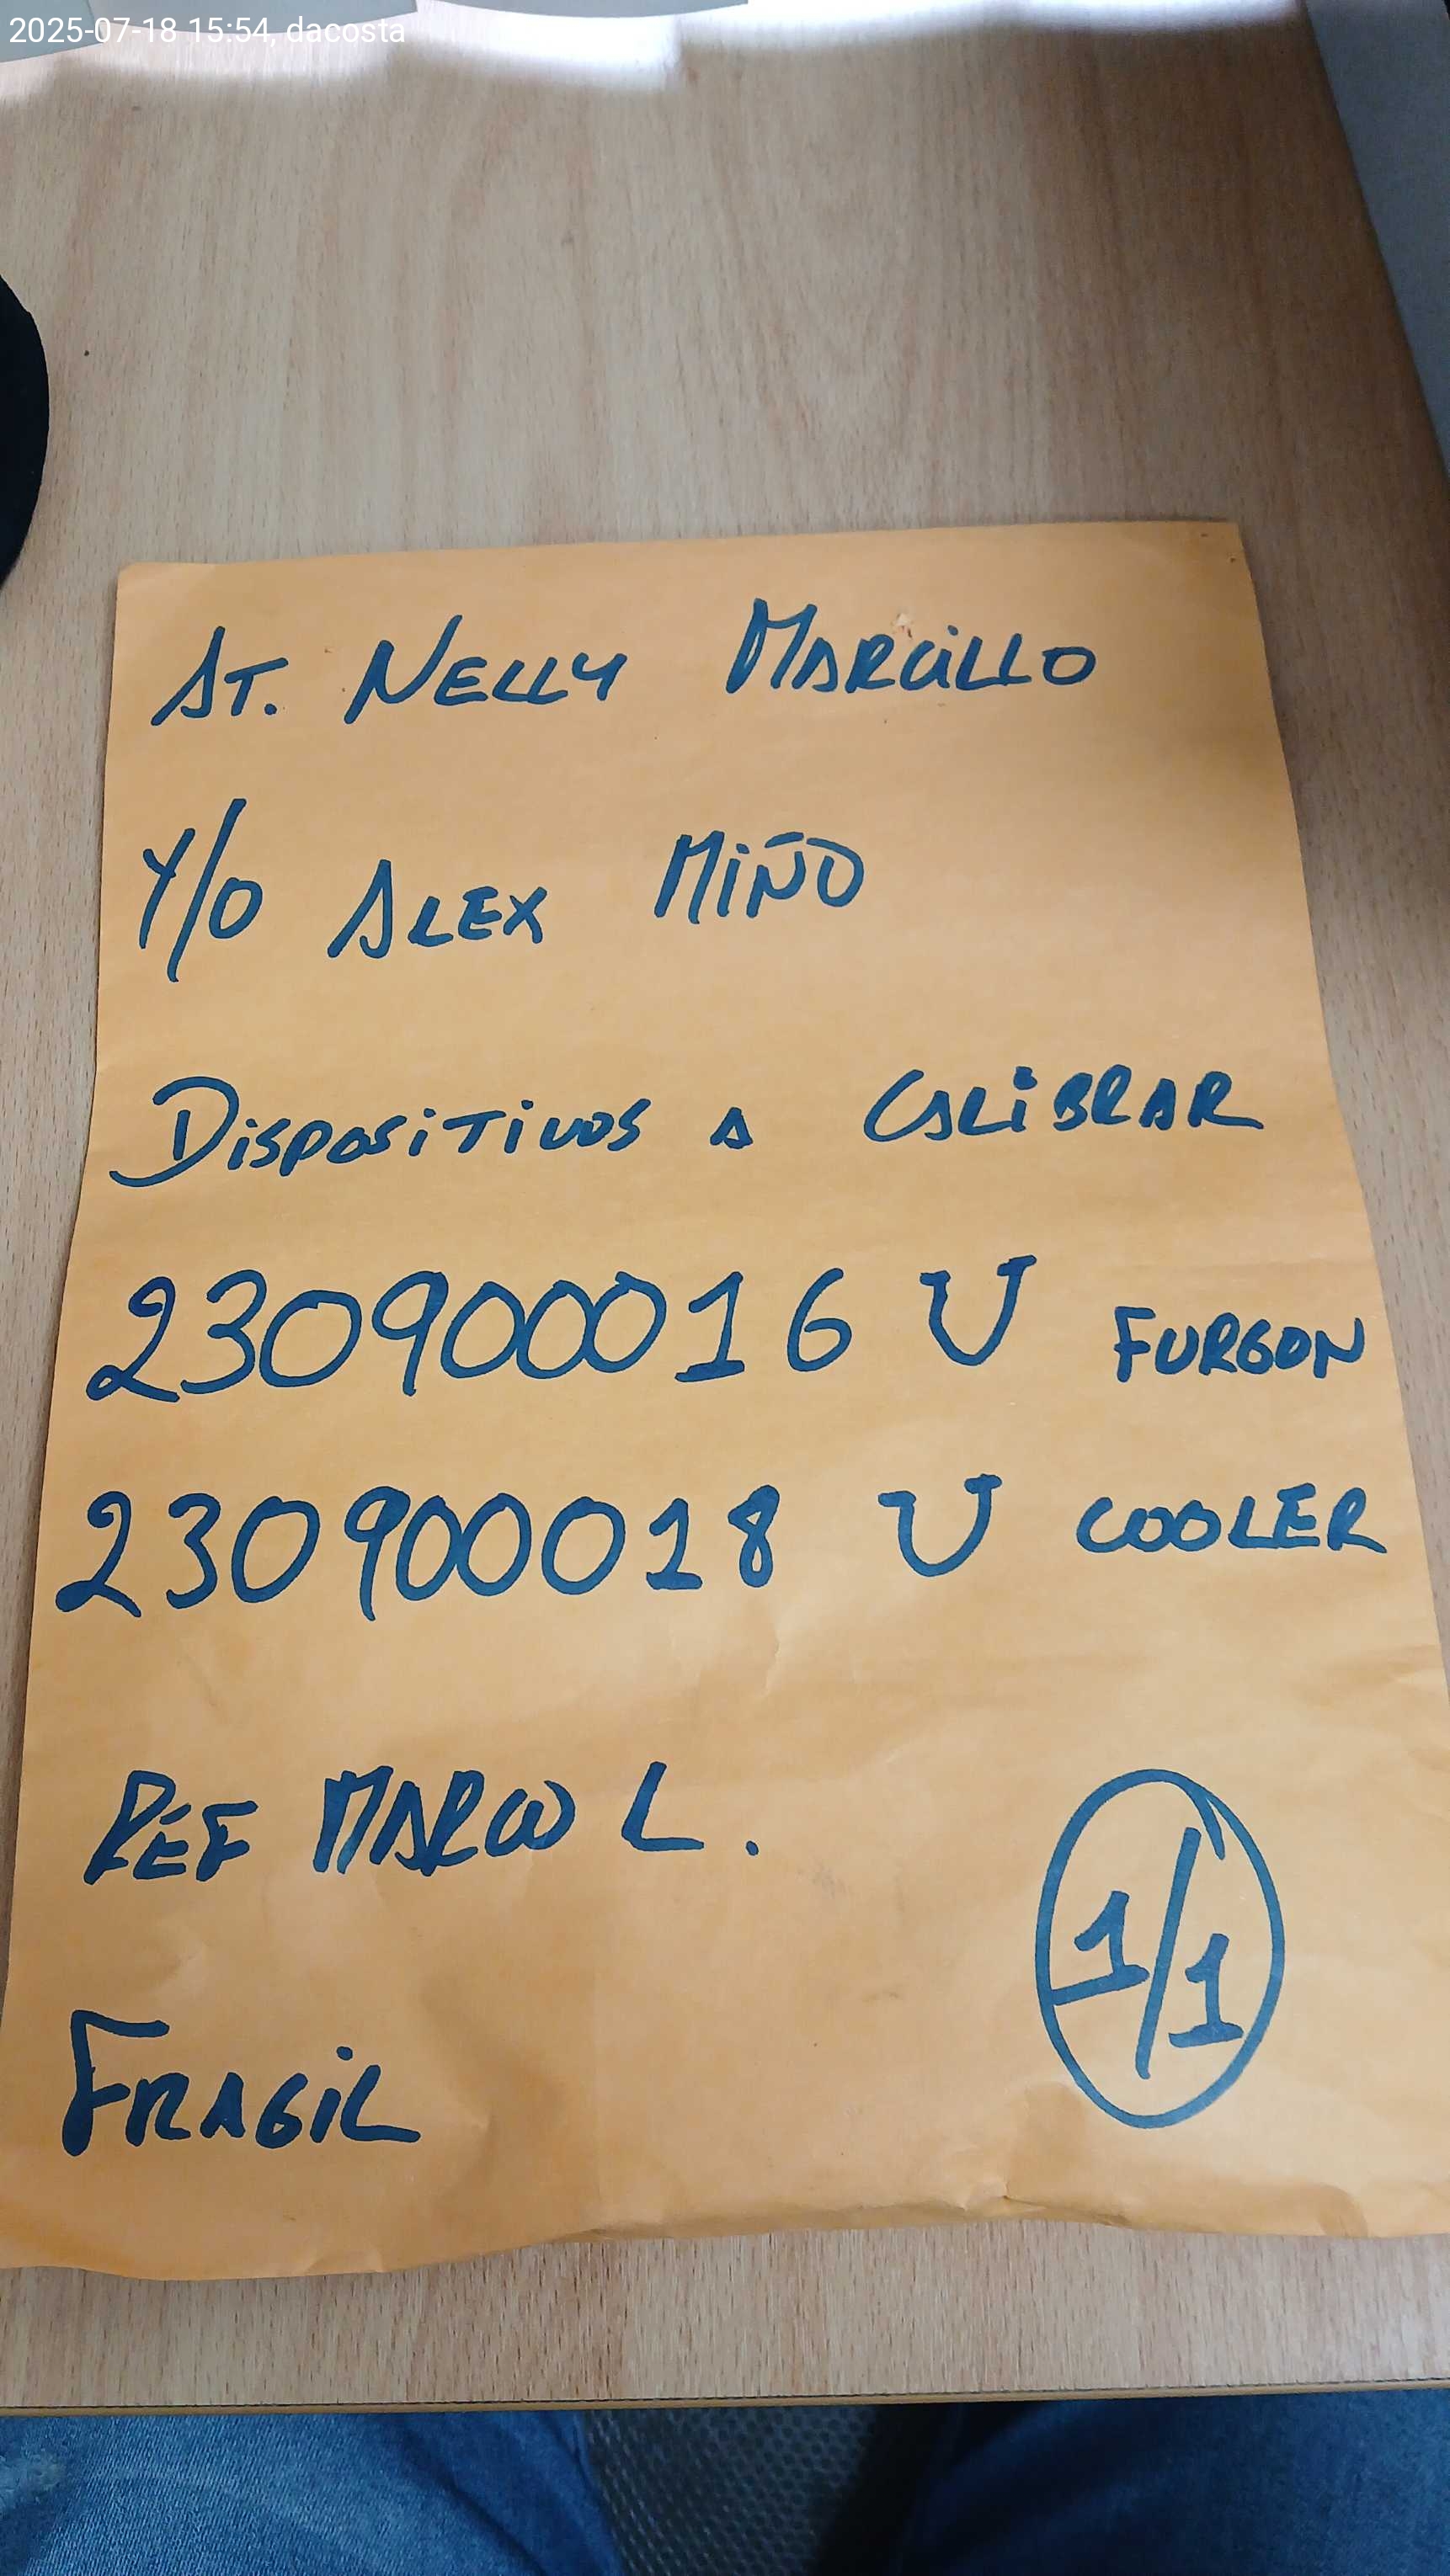 2025-07-18 15:54, dacosta
AT. NELLY MARCILLO
Y/O ALEX MIÑO
DISPOSITIVOS A CALIBRAR
230900016 U FURGON
230900018 U COOLER
REF MARCO L.
1/1
FRAGIL